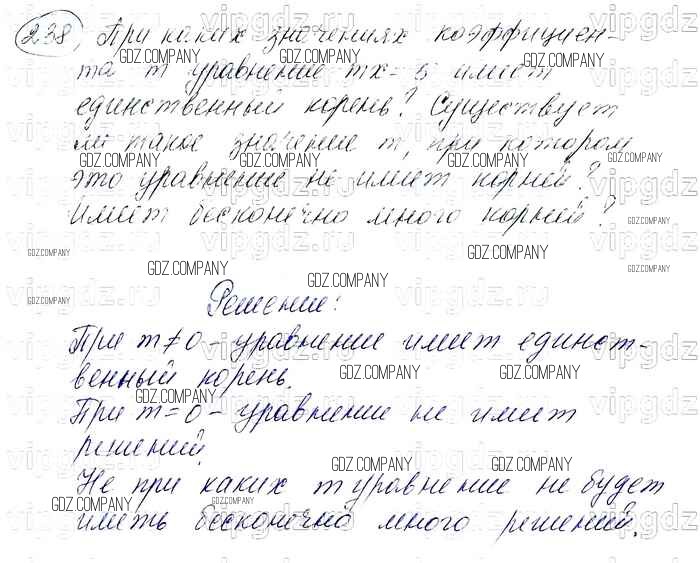 238. При каких значениях коэффициен-
та m уравнение mx = 5 имеет
единственный корень? Существует
ли такое значение m, при котором
это уравнение не имеет корней?
Имеет бесконечно много корней?
Решение:
При m≠0 - уравнение имеет единст-
венный корень.
При m=0 - уравнение не имеет
решений.
Не при каких m уравнение не будет
иметь бесконечно много решений.